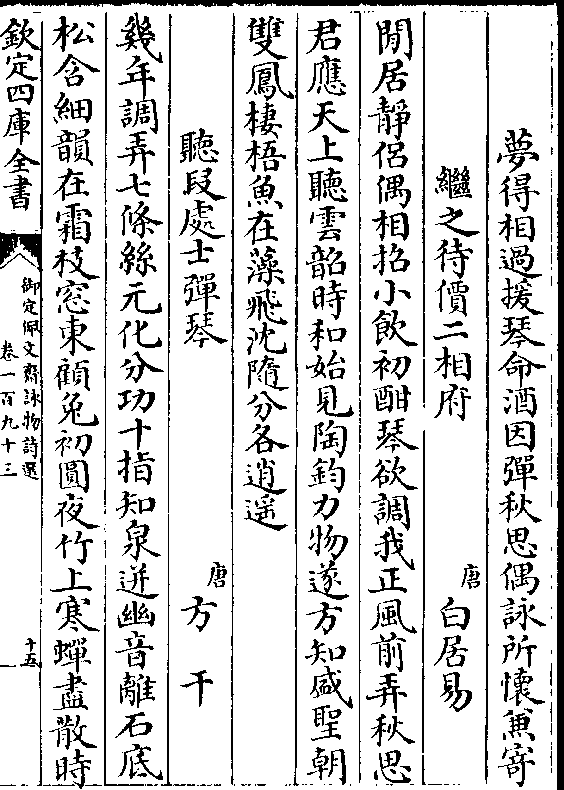 夢得相過援琴命酒因彈秋思偶詠所懷兼寄
繼之待價二相府 唐 白居易
閒居靜侶偶相招小飲初酣琴欲調我正風前弄秋思
君應天上聽雲韶時和始見陶鈞力物遂方知盛聖朝
雙鳳棲梧魚在藻飛沈隨分各逍遥
聽段處士彈琴 唐 方干
幾年調弄七條絲元化分功十指知泉迸幽音離石底
松含細韻在霜枝窓東顧兔初圓夜竹上寒蟬盡散時
欽定四庫全書
御定佩文齋詠物詩選
卷一百九十三
十五